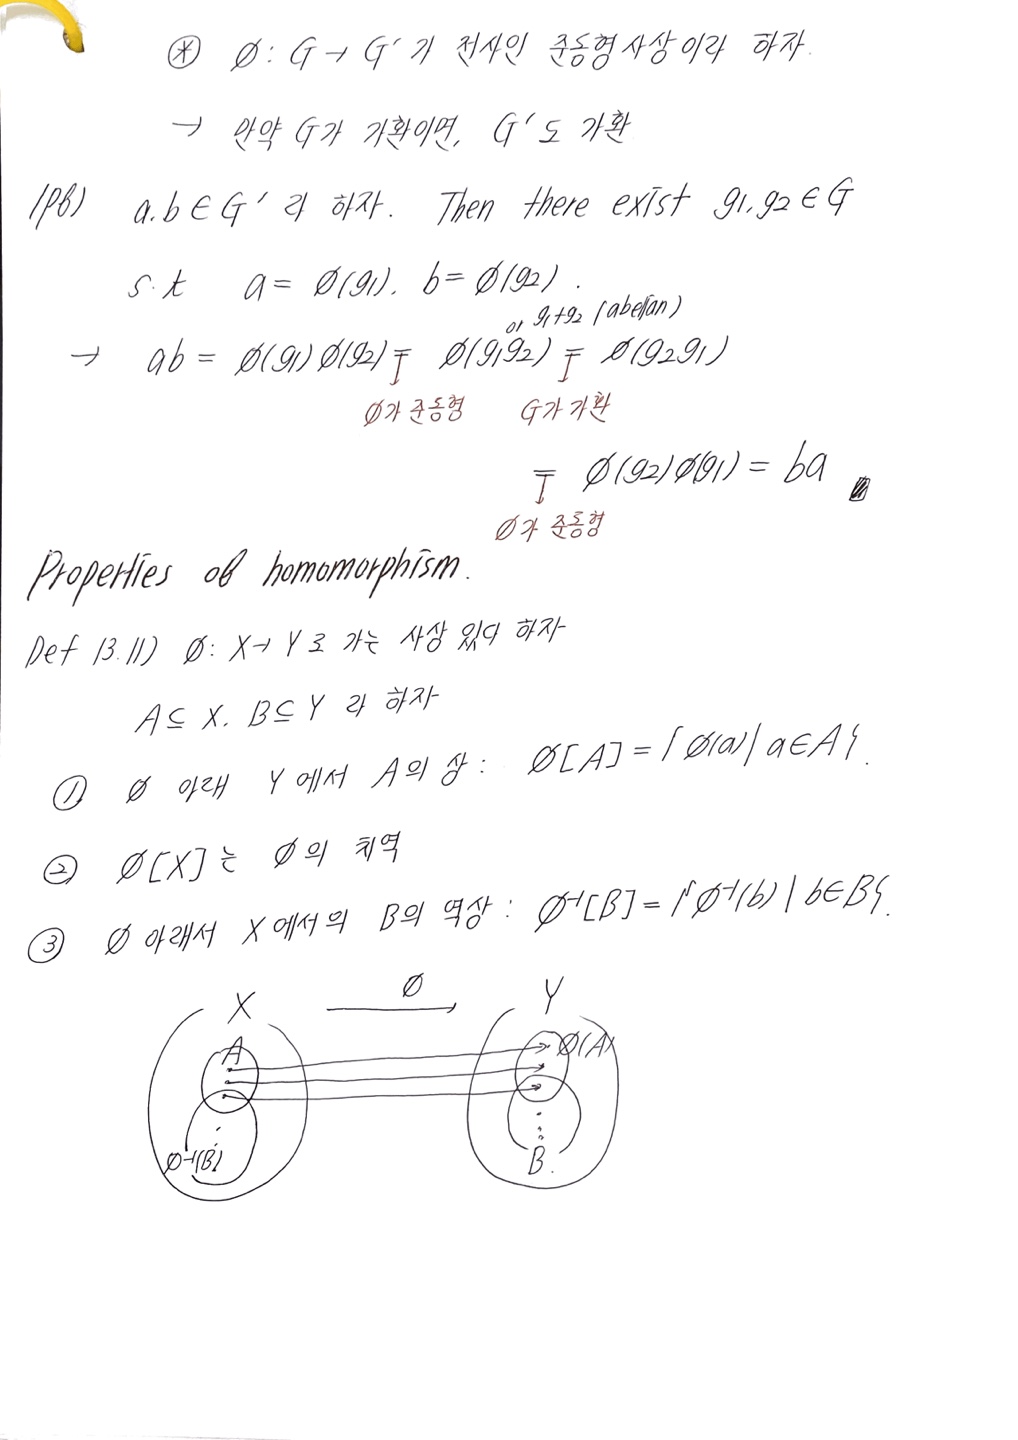 ⊛ ∅: G → G'가 전사인 준동형사상이라 하자.
→ 만약 G가 가환이면, G'도 가환
(pf) a, b ∈ G' 라 하자. Then there exist g1, g2 ∈ G
s.t a = ∅(g1), b = ∅(g2).
or g1+g2 (abelian)
→ ab = ∅(g1)∅(g2) = ∅(g1g2) = ∅(g2g1)
∅가 준동형 G가 가환
= ∅(g2)∅(g1) = ba
∅가 준동형
Properties of homomorphism.
Def 13.11) ∅: X → Y로 가는 사상 있다 하자
A ⊆ X, B ⊆ Y 라 하자
① ∅ 아래 Y에서 A의 상 : ∅[A] = {∅(a) | a ∈ A}.
② ∅[X]는 ∅의 치역
③ ∅ 아래서 X에서의 B의 역상 : ∅⁻¹[B] = {∅⁻¹(b) | b ∈ B}.
X ∅ Y
A ∅(A)
∅⁻¹(B) B.